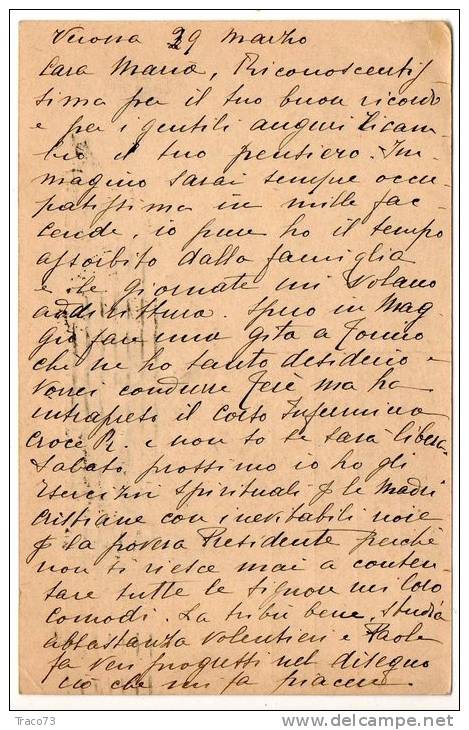 Verona 29 Marzo
Cara Maria, Riconoscentis
sima per il tuo buon ricordo
e per i gentili auguri ricam
bio il tuo pensiero. Im-
magino sarai sempre occu
patissima in mille fac-
cende, io pure ho il tempo
assorbito dalla famiglia
e che giornate mi volano
addirittura. Spero in Mag
gio fare una gita a Torino
che ne ho tanto desiderio e
vorrei condurre ma ha
intrapreso il corso Infermiera
Croce R. e non so se sarà libera
Sabato prossimo io ho gli
Esercizi Spirituali p le Madri
Cristiane con inevitabili noie
p la povera Presidente perchè
non si riesce mai a conten-
tare tutte le signore nei loro
comodi. La tribù bene, studia
abbastanza volentieri e Paola
fa veri progressi nel disegno
ciò che mi fa piacere.
Traco73
www.delcampe.net